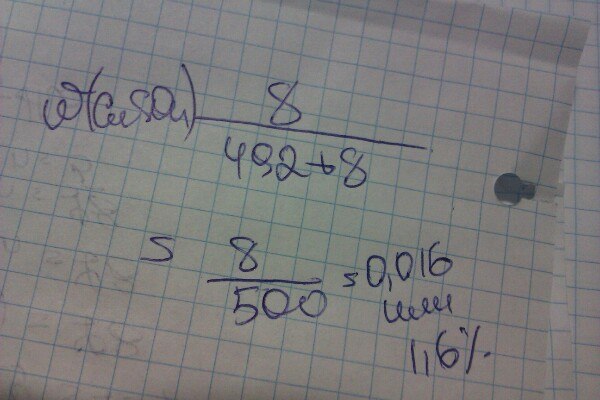 ω(CuSO4) 8
492+8
= 8
500
= 0,016
или
1,6%